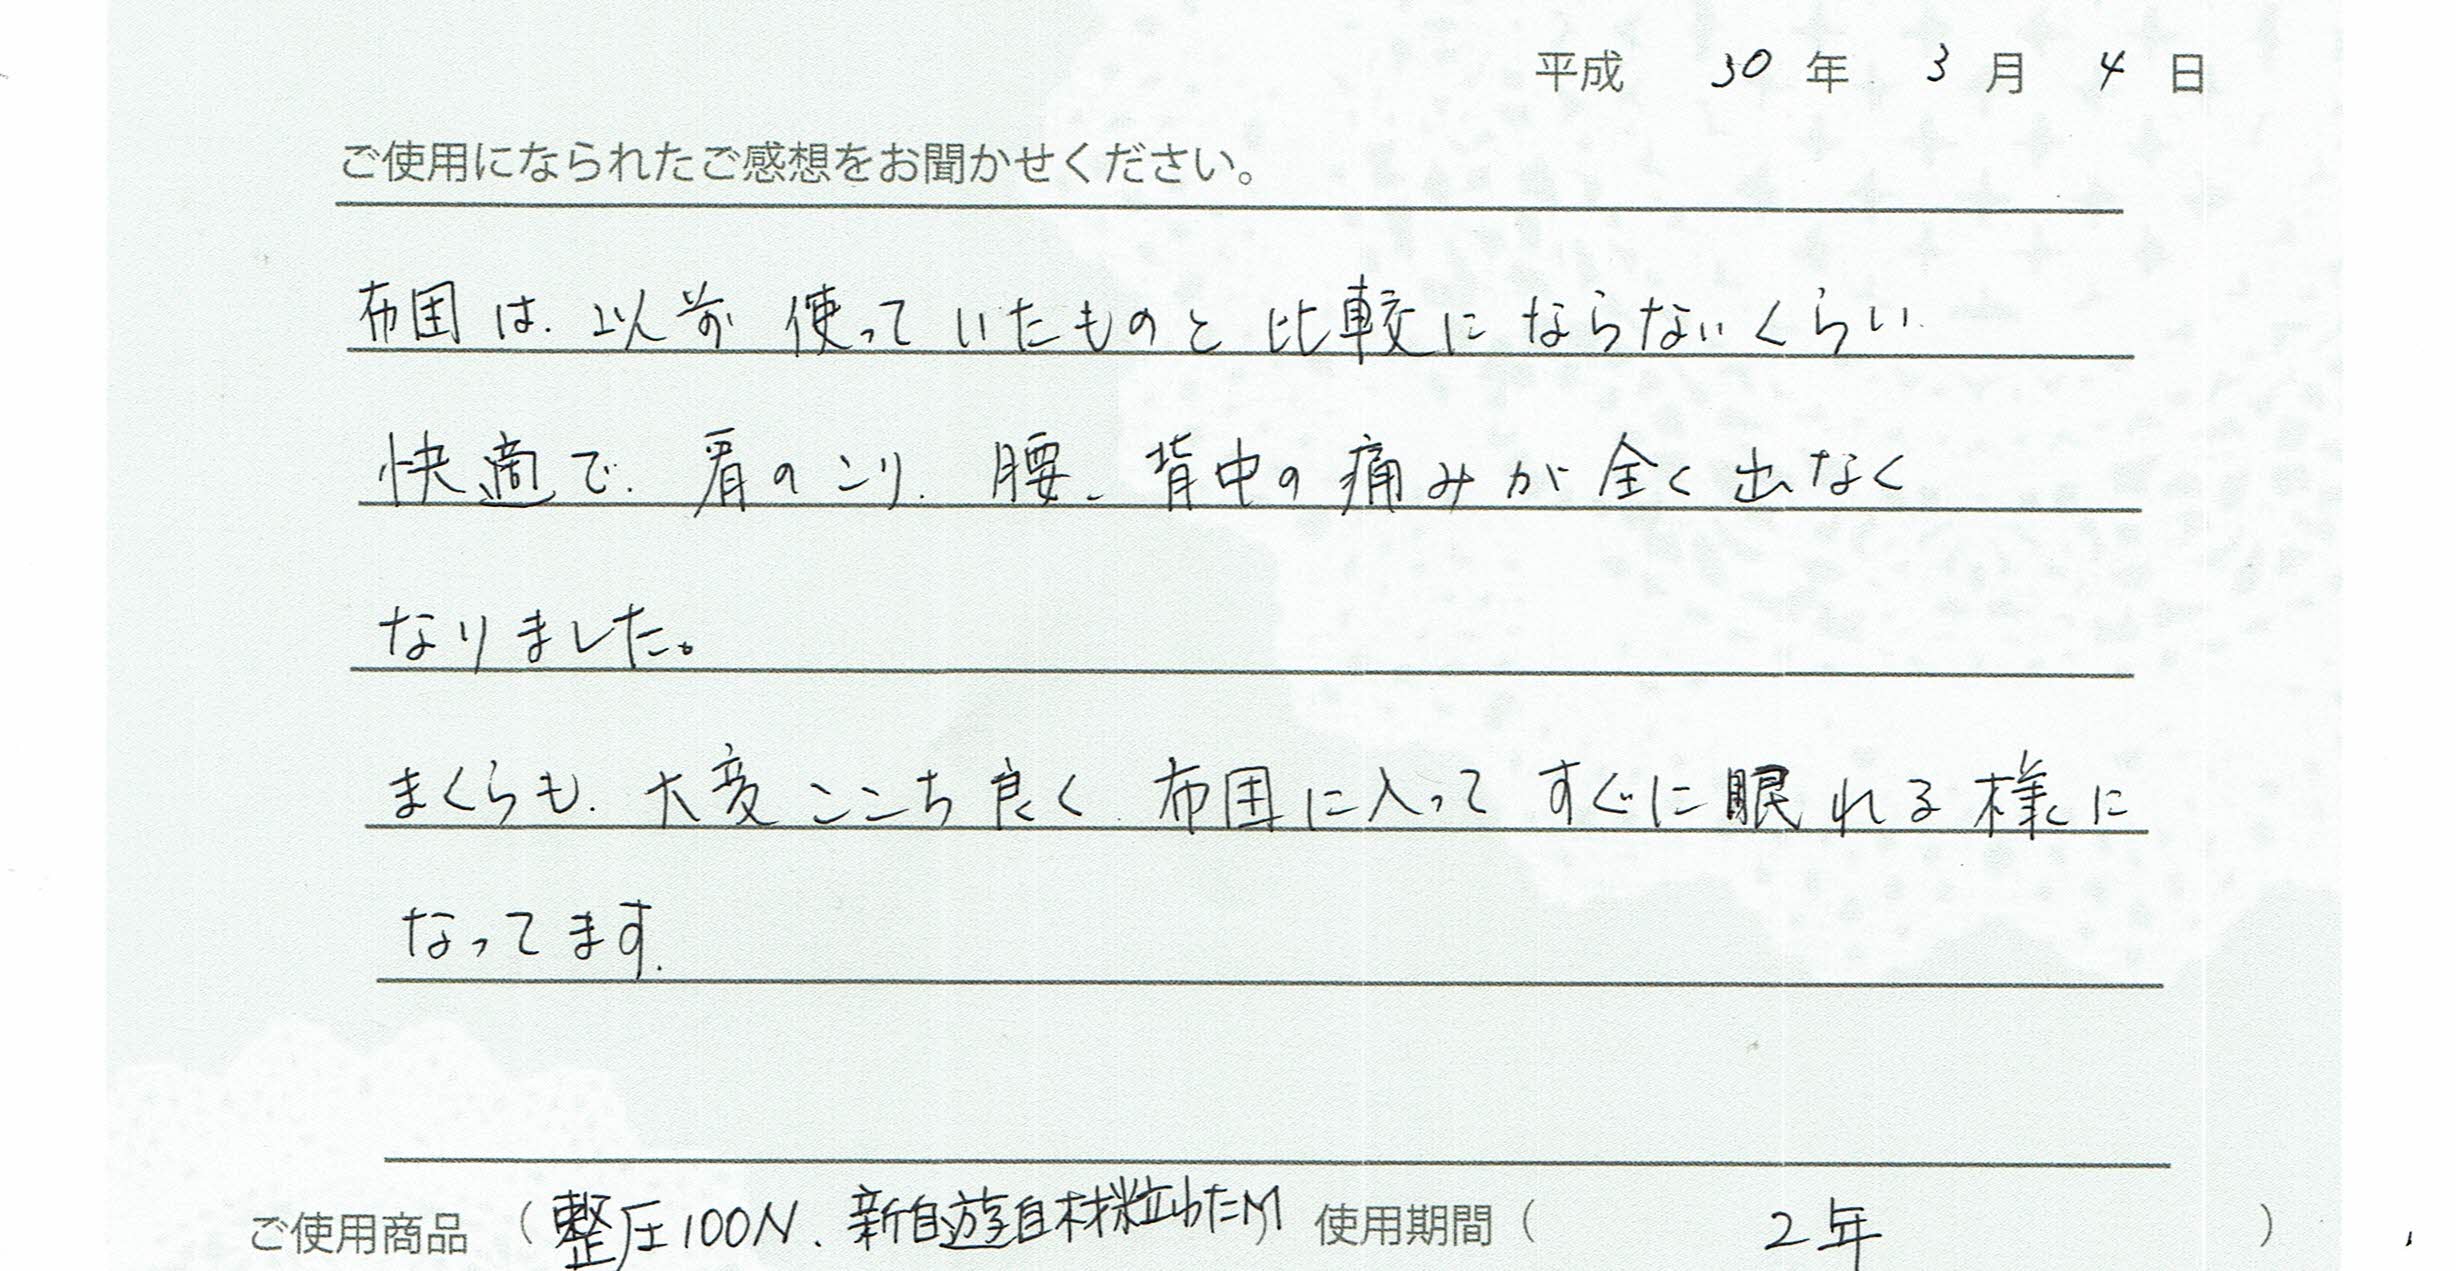 平成 30 年 3 月 4 日
ご使用になられたご感想をお聞かせください。
布団は、以前使っていたものと比較にならないくらい
快適で、肩のこり、腰、背中の痛みが全く出なく
なりました。
まくらも、大変ここち良く、布団に入ってすぐに眠れる様に
なってます。
ご使用商品 (整圧100N、新自遊自材粒わたM) 使用期間 ( 2年 )